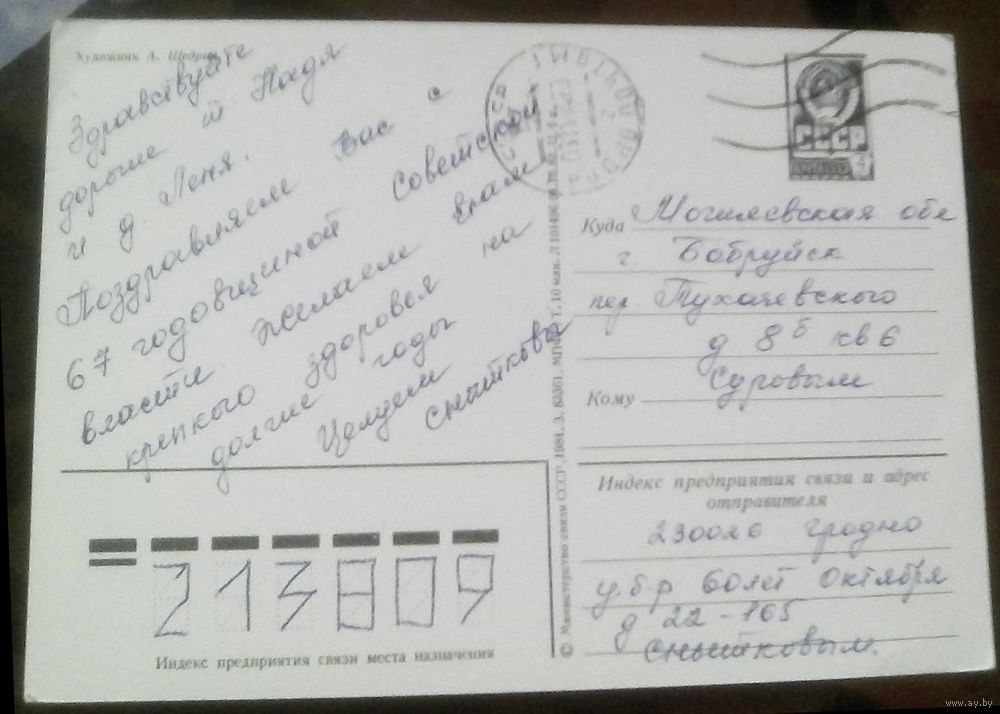 Художник А. Щедрин
Здравствуйте
дорогие т Надя
и д. Леня.
Поздравляем Вас с
67 годовщиной Советской
власти. Желаем Вам
крепкого здоровья на
долгие годы
Целуем
Снытковы
СССР
СССР
4
Куда Могилевская обл
г. Бобруйск
пер Тухачевского
д 8б кв 6
Кому Суровым
Индекс предприятия связи и адрес
отправителя
230026 Гродно
у. б-р 60 лет Октября
д 22-165
Снытковым.
213809
Индекс предприятия связи места назначения
© Министерство связи СССР, 1984. З. 83361. МПФГ.
www.ay.by